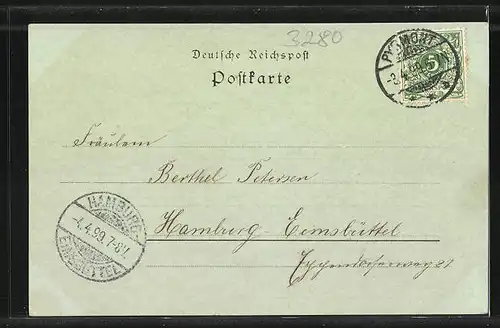 3280
Deutsche Reichspost
Postkarte
PYRMONT
-3.4.99
5
Fräulein
Berthel Petersen
Hamburg-Eimsbüttel
Eppendorferweg 21
HAMBURG
-4.4.99.7-8V.
EIMSBÜTTEL